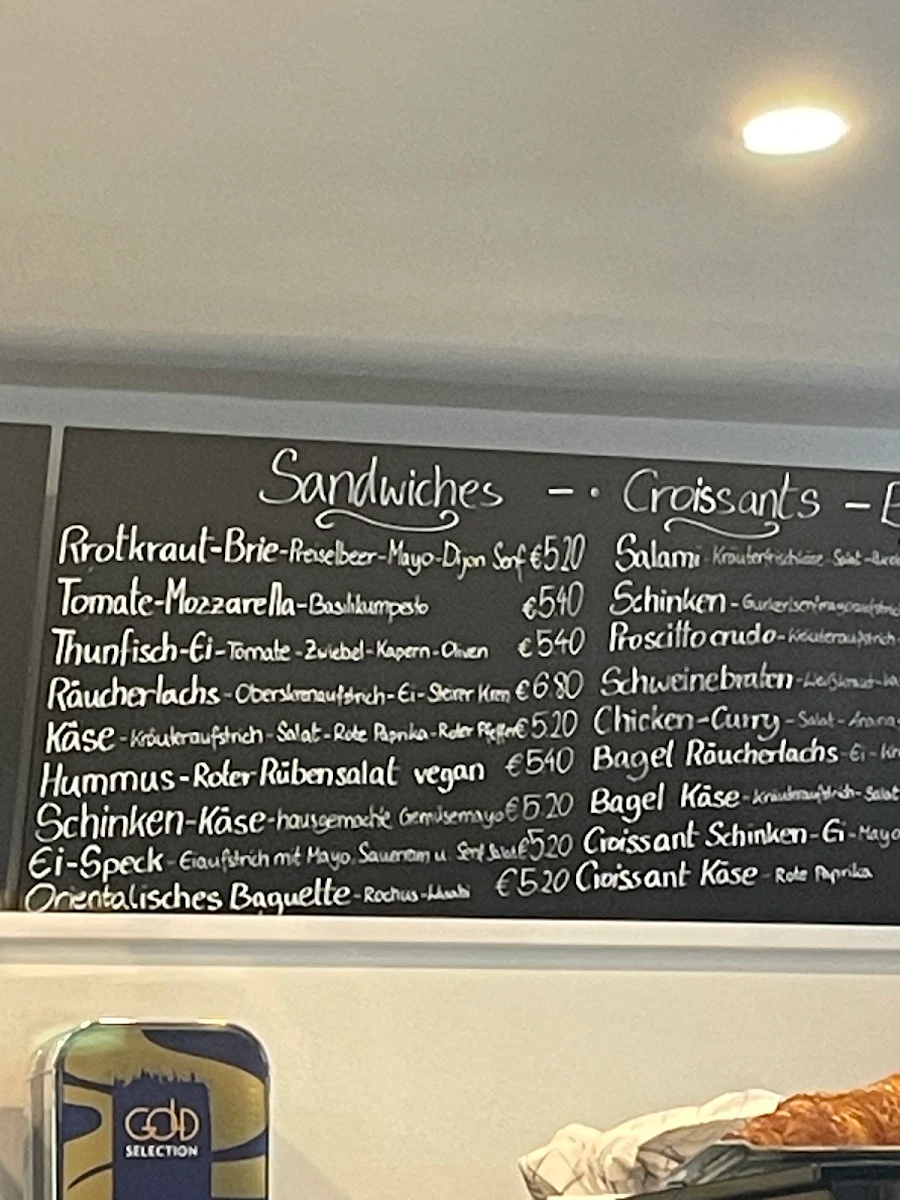 Sandwiches - · Croissants -
Rrotkraut-Brie-Preiselbeer-Mayo-Dijon Senf €520
Tomate-Mozzarella-Basilikumpesto €540
Thunfisch-Ei-Tomate-Zwiebel-Kapern-Oliven €540
Räucherlachs-Oberskrenaufstrich-Ei-Steirer Kren €680
Käse-Kräuteraufstrich-Salat-Rote Paprika-Roter Pfeffer €520
Hummus-Roter Rübensalat vegan €540
Schinken-Käse-hausgemachte Gemüsemayo €520
Ei-Speck-Eiaufstrich mit Mayo, Sauerrahm u. Senf Salat €520
Orientalisches Baguette- €520
Salami-Kräuterfrischkäse-Salat-
Schinken-
Proscitto crudo-Kräuteraufstrich-
Schweinebraten-Weißkraut-
Chicken-Curry-Salat-
Bagel Räucherlachs-Ei-
Bagel Käse-Kräuteraufstrich-Salat
Croissant Schinken-Ei-Mayo
Croissant Käse-Rote Paprika
GOLD
SELECTION